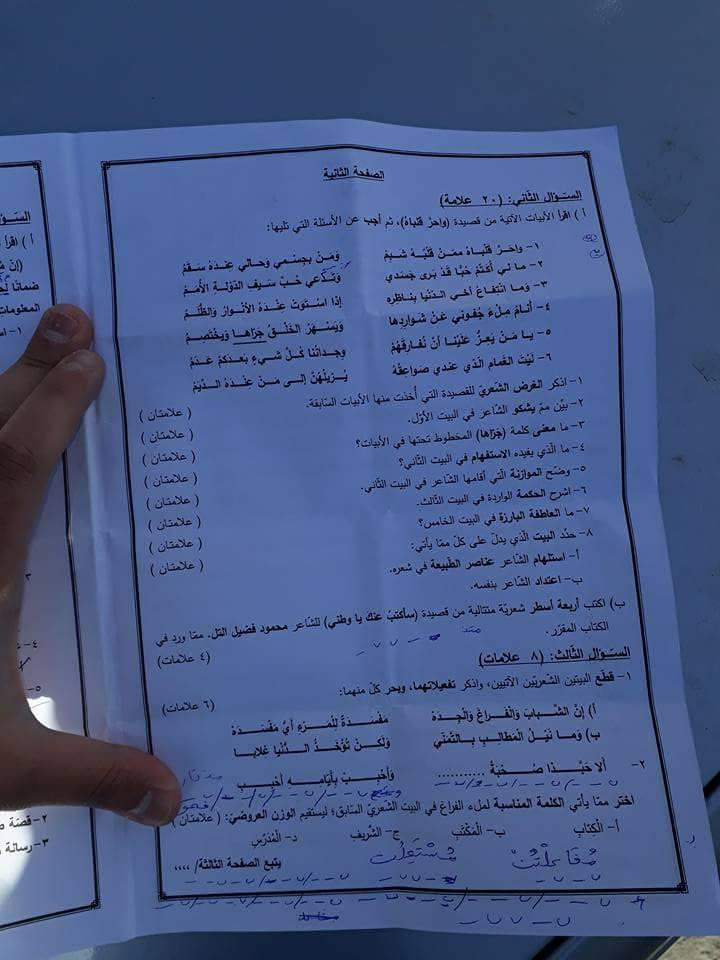 الصفحة الثانية
السـؤال الثاني: (٢٠ علامة)
أ ) اقرأ الأبيات الآتية من قصيدة (واحرّ قلباه)، ثم أجب عن الأسئلة التي تليها:
١- واحَرّ قَلْباهُ ممّنْ قَلْبُهُ شَبِمُ ومَنْ بجِسْمي وحالي عِندَهُ سَقَمُ
٢- ما لي أُكَتِّمُ حُبًّا قَدْ بَرى جَسَدي وتَدَّعي حُبَّ سَيفِ الدّولةِ الأُمَمُ
٣- ومَا انتِفاعُ أخي الدّنْيا بناظِرِهِ إذا اسْتَوَتْ عِنْدَهُ الأنْوارُ والظُّلَمُ
٤- أنامُ مِلْءَ جُفوني عَنْ شَوارِدِها ويَسْهَرُ الخَلْقُ جَرّاها ويَخْتَصِمُ
٥- يا مَنْ يَعِزُّ عَلَيْنا أنْ نُفارِقَهُمْ وِجدانُنا كُلَّ شيءٍ بَعدَكمْ عَدَمُ
٦- لَيْتَ الغَمامَ الّذي عندي صَواعِقُهُ يُزيلُهُنّ إلى مَنْ عِنْدَهُ الدِّيَمُ
١- اذكر الغرض الشّعريّ للقصيدة التي أُخذت منها الأبيات السّابقة. ( علامتان )
٢- بيّن ممّ يشكو الشّاعر في البيت الأوّل. ( علامتان )
٣- ما معنى كلمة (جَرّاها) المخطوط تحتها في الأبيات؟ ( علامتان )
٤- ما الّذي يفيده الاستفهام في البيت الثّاني؟ ( علامتان )
٥- وضّح الموازنة الّتي أقامها الشّاعر في البيت الثّاني. ( علامتان )
٦- اشرح الحكمة الواردة في البيت الثّالث. ( علامتان )
٧- ما العاطفة البارزة في البيت الخامس؟ ( علامتان )
٨- حدّد البيت الّذي يدلّ على كلّ ممّا يأتي: ( علامتان )
أ- استلهام الشّاعر عناصر الطّبيعة في شعره.
ب- اعتداد الشّاعر بنفسه.
ب) اكتب أربعة أسطر شعريّة متتالية من قصيدة (سأكتبُ عنك يا وطني) للشّاعر محمود فضيل التل. ممّا ورد في
الكتاب المقرّر. (٤ علامات)
السـؤال الثالث: (٨ علامات)
١- قطّع البيتين الشّعريّين الآتيين، واذكر تفعيلاتهما، وبحر كلّ منهما: (٦ علامات)
أ) إنّ الشّبابَ والفَراغَ والجِدَهْ مَفْسَدَةٌ للمَرْءِ أيُّ مَفْسَدَهْ
ب) وما نَيْلُ المَطالِبِ بالتّمَنّي ولكِنْ تُؤْخَذُ الدُّنْيا غِلابا
٢- ألا حَبَّذا صُحْبَةُ ........... وأحْبِبْ بأيّامِهِ أحْبِبِ
اختر ممّا يأتي الكلمة المناسبة لملء الفراغ في البيت الشّعريّ السابق؛ ليستقيم الوزن العروضيّ: ( علامتان )
أ- الْكِتابِ ب- المَكْتَبِ ج- الشّريفِ د- الْمُدَرّسِ
مُفَاعَلَتُنْ مُسْتَعِلُن
يتبع الصفحة الثالثة/ ....